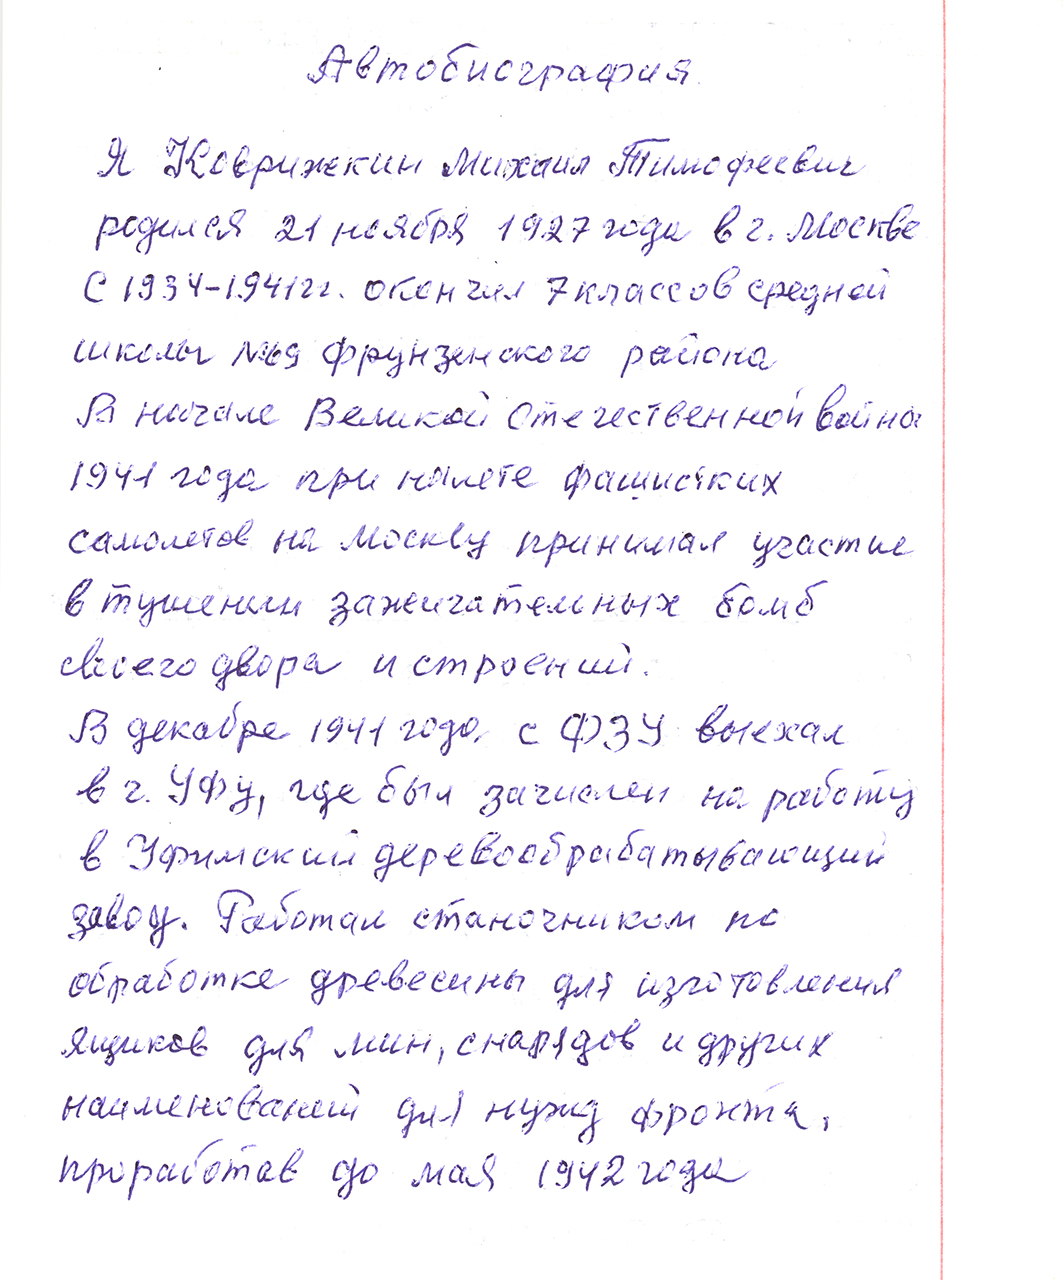 Автобиография
Я Коврижкин Михаил Тимофеевич
родился 21 ноября 1927 года в г. Москве
С 1934-1941гг. окончил 7 классов средней
школы №69 Фрунзенского района
В начале Великой Отечественной война
1941 года при налете фашистких
самолетов на Москву принимал участие
в тушении зажигательных бомб
своего двора и строений.
В декабре 1941 года с ФЗУ выехал
в г. Уфу, где был зачислен на работу
в Уфимский деревообрабатывающий
завод. Работал станочником по
обработке древесины для изготовления
ящиков для мин, снарядов и других
наименований для нужд фронта,
проработав до мая 1942 года